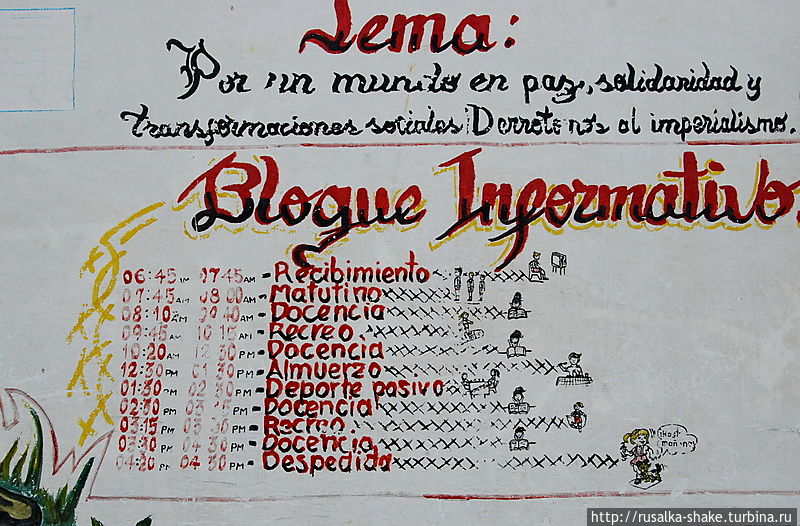 Tema:
Por un mundo en paz, solidaridad y
transformaciones sociales Derrotemos al imperialismo.
Bloque Informativo.
06:45 AM 07:45 AM - Recibimiento
07:45 AM 08:00 AM - Matutino
08:10 AM 09:40 AM - Docencia
09:45 AM 10:15 AM - Recreo
10:20 AM 12:30 PM - Docencia
12:30 PM 01:30 PM - Almuerzo
01:30 PM 02:30 PM - Deporte pasivo
02:30 PM 03:15 PM - Docencia
03:15 PM 03:30 PM - Recreo.
03:30 PM PM - Docencia
04:20 PM 04:30 PM - Despedida
http://rusalka-shake.turbina.ru/